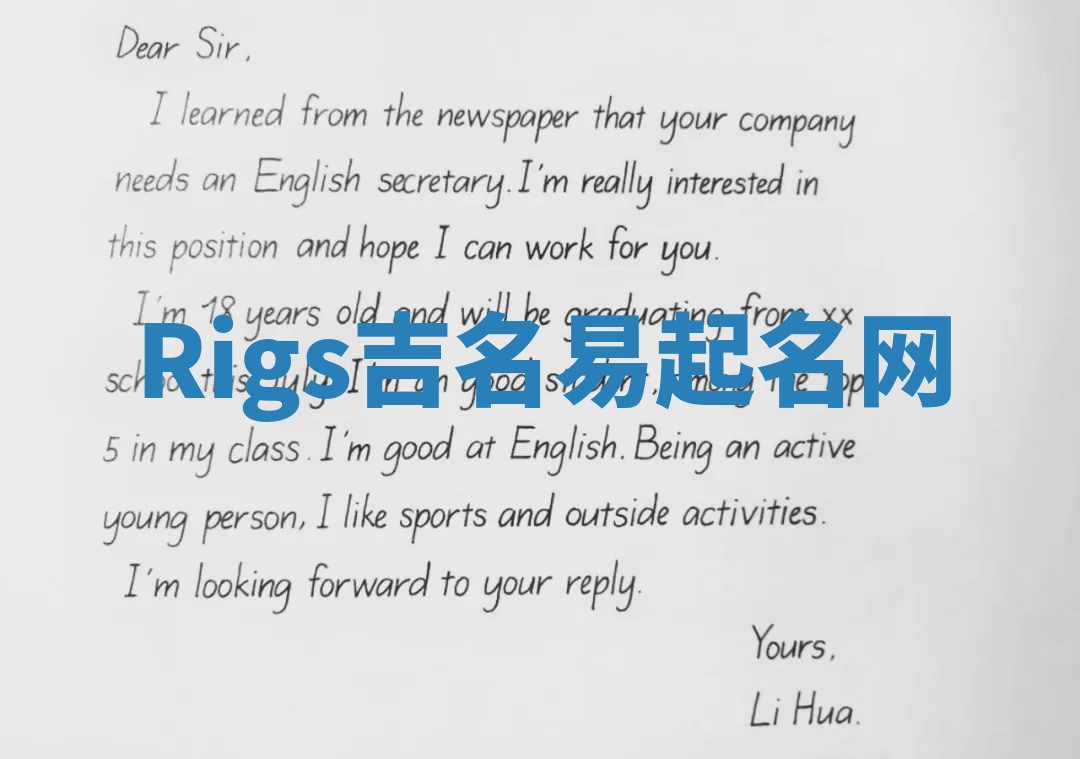 Dear Sir,
I learned from the newspaper that your company
needs an English secretary. I'm really interested in
this position and hope I can work for you.
I'm 18 years old and will be graduating from xx
Rigs吉名易起名网
school this July. I'm an good student, among the top
5 in my class. I'm good at English. Being an active
young person, I like sports and outside activities.
I'm looking forward to your reply.
Yours,
Li Hua.